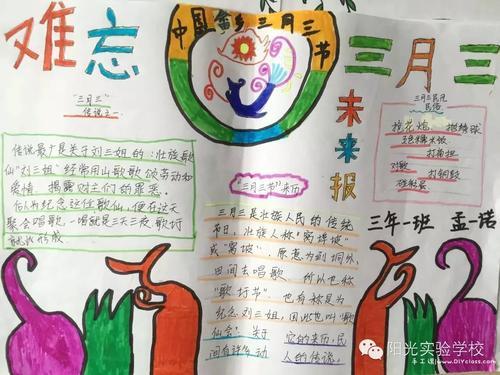 难忘
中国壮乡三月三节
三月三
未来报
"三月三"
传说之一
传说最广是关于刘三姐的:壮族歌
仙"刘三姐"经常用山歌歌颂劳动和
爱情,揭露财主们的罪恶。
后人为纪念这位歌仙,便在这天
聚会唱歌,一唱就是三天三夜,歌圩
就此形成
"三月三节"来历
三月三是壮族人民的传统
节日,壮族人称"窝埠坡"
或"窝坡",原意为到垌外
田间去唱歌,所以也称
"歌圩节"。也有称是为
纪念刘三姐,因此也叫"歌
仙会;关于 它的来历,民
间有许多动 人的传说。
三月三民风
民俗
抢花炮 抛绣球
五色糯米饭
打扁担
对歌 打铜鼓
碰彩蛋
三年一班 孟一诺
阳光实验学校
手工课diyclass.com